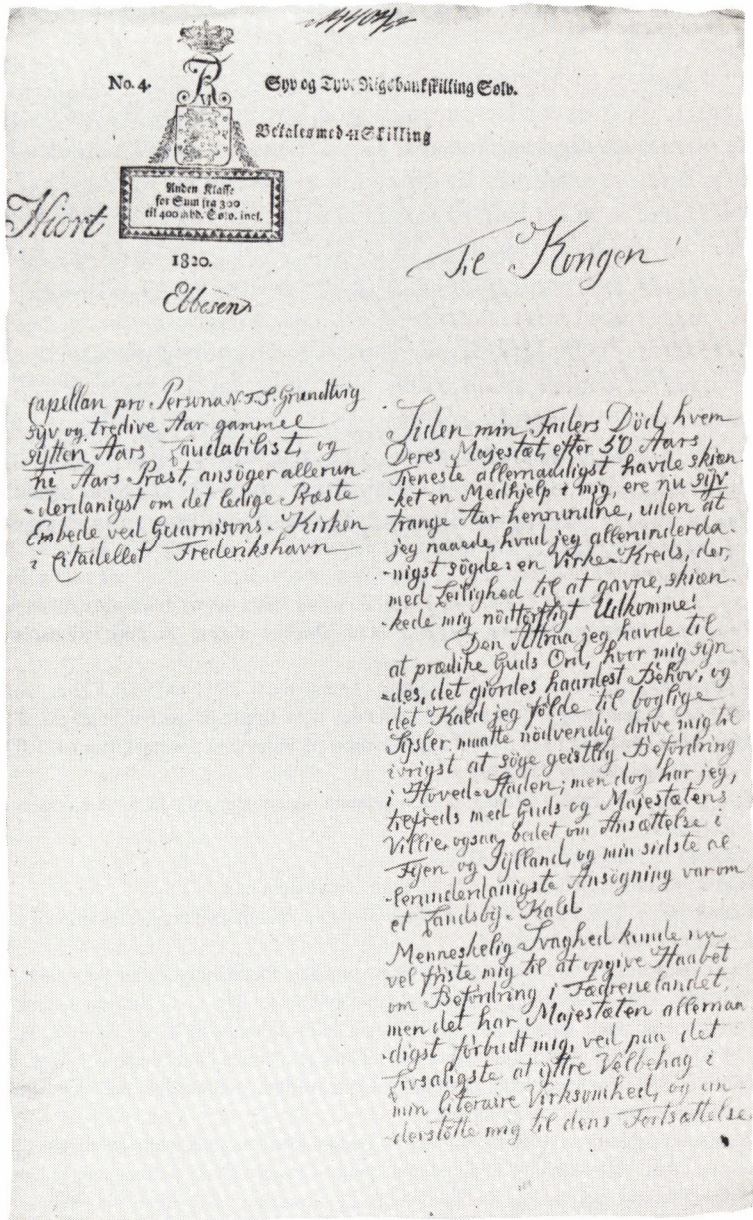 No. 4.
Syv og Tyve Rigsbankskilling Sølv.
Betales med 41 Skilling
Anden Klasse
for Sum fra 300
til 400 Rbd. Sølv. incl.
1820.
Hiort
Ebbesen
Til Kongen!
Capellan pro Persona N.F.S. Grundtvig
syv og tredive Aar gammel
sytten Aars Laudabilist, og
ni Aars Præst, ansöger allerun
-derdanigst om det ledige Præste
Embede ved Guarnisons-Kirken
i Citadellet Frederikshavn
Siden min Faders Död, hvem
Deres Majestæt, efter 50 Aars
Tieneste allernaadigst havde skiæn
ket en Medhjelp i mig, ere nu syv
trange Aar henrundne, uden at
jeg naaede, hvad jeg allerunderda
-nigst sögde: en Virke-Kreds, der,
med Leilighed til at gavne, skiæn
-kede mig nödtörftigt Udkomme!
Den Attraa jeg havde til
at prædike Guds Ord, hvor mig syn
-des, det giordes haardest Behov, og
det Kald jeg földe til boglige
Sysler maatte nödvendig drive mig til
ivrigst at söge geistlig Befordring
i Hoved-Staden; men dog har jeg,
tilfreds med Guds og Majestætens
Villie, ogsaa bedet om Ansættelse i
Fyen og Jylland, og min sidste al
-lerunderdanigste Ansögning var om
et Landsby-Kald
Menneskelig Svaghed kunde nu
vel friste mig til at opgive Haabet
om Befordring i Fædrenelandet,
men det har Majestæten allernaa
-digst forbudt mig, ved paa det
livsaligste at yttre Velbehag i
min literaire Virksomhed, og un-
-derstötte mig til dens Fortsættelse